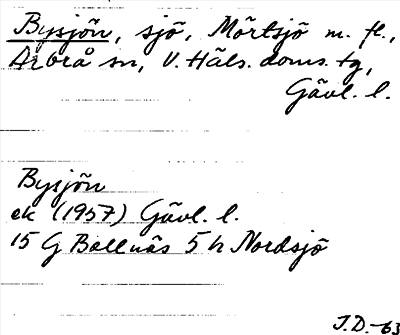 Bysjön, sjö, Mörtsjö m. fl.,
Arbrå sn, V. Häls. doms. tg,
Gävl. l.
Bysjön
ek (1957) Gävl. l.
15 G Bollnäs 5 h Nordsjö
J.D.-63